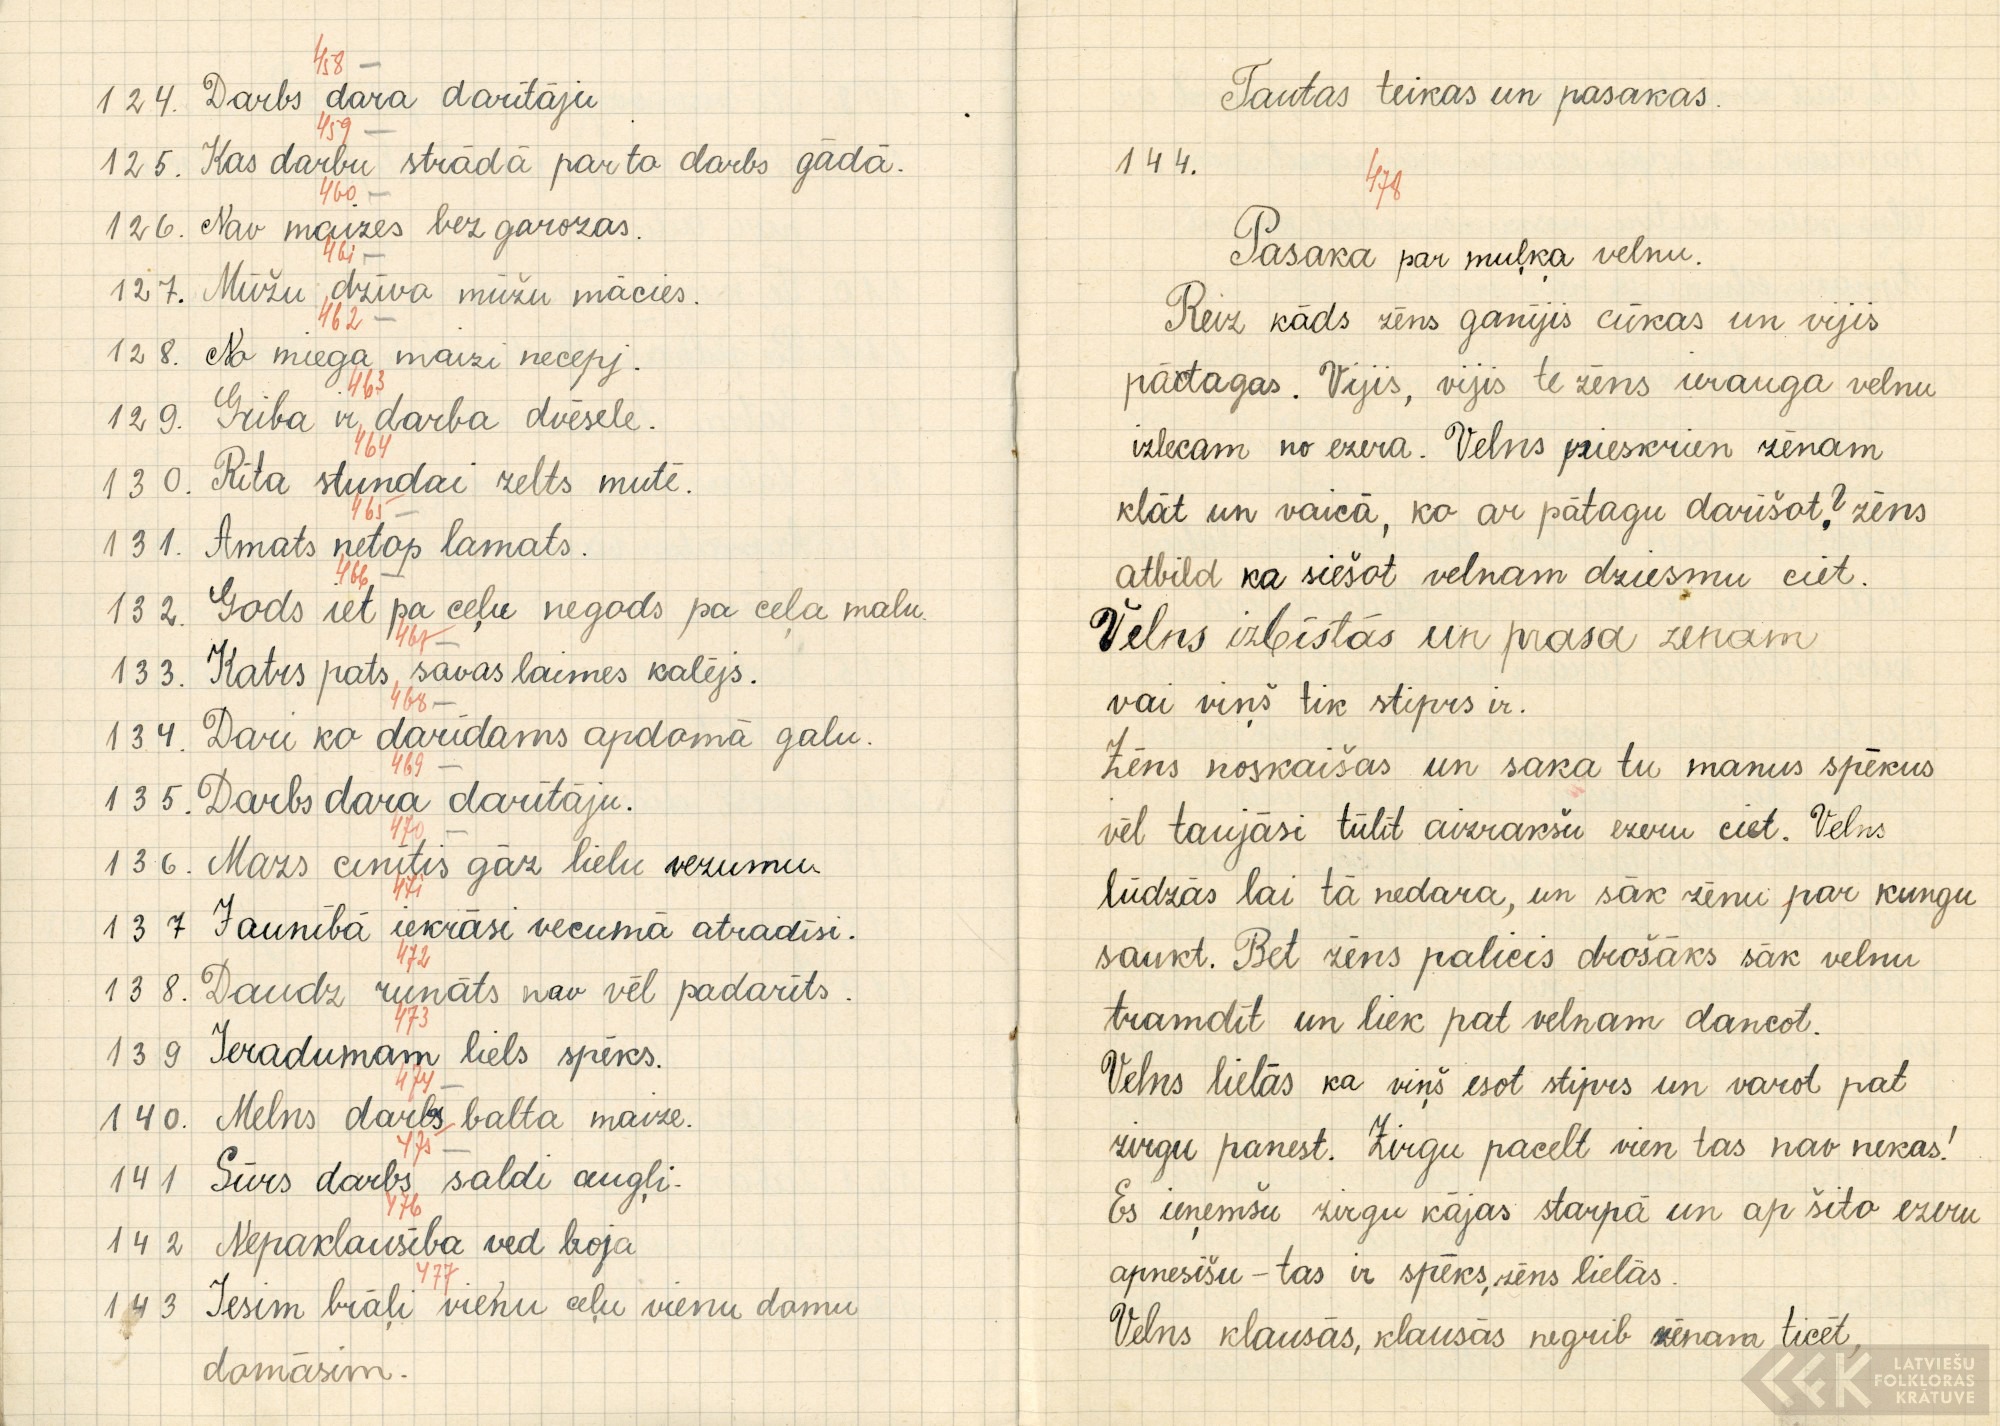 458 –
124. Darbs dara darītāju
459 –
125. Kas darbu strādā par to darbs gādā.
460 –
126. Nav maizes bez garozas.
461 –
127. Mūžu dzīvo mūžu mācies.
462 –
128. No miega maizi necepj.
463
129. Griba ir darba dvēsele.
464
130. Rīta stundai zelts mutē.
465 –
131. Amats netop lamats.
466 –
132. Gods iet pa ceļu negods pa ceļa malu.
467 –
133. Katrs pats savas laimes kalējs.
468 –
134. Dari ko darīdams apdomā galu.
469 –
135. Darbs dara darītāju.
470 –
136. Mazs cinītis gāz lielu vezumu.
471
137 Jaunībā iekrāsi vecumā atradīsi.
472
138. Daudz runāts nav vēl padarīts.
473
139 Ieradumam liels spēks.
474 –
140. Melns darbs balta maize.
475 –
141 Sūrs darbs saldi augļi.
476
142 Nepaklausība ved boja
477
143 Iesim brāļi vienu ceļu vienu domu
domāsim.
Tautas teikas un pasakas.
144.
478
Pasaka par muļķa velnu.
Reiz kāds zēns ganījis cūkas un vijis
pātagas. Vijis, vijis te zēns irauga velnu
izlecam no ezera. Velns pieskrien zēnam
klāt un vaicā, ko ar pātagu darīšot? zēns
atbild ka siešot velnam dziesmu ciet.
Velns izbīstās un prasa zenam
vai viņš tik stiprs ir.
Zēns noskaišas un saka tu manus spēkus
vēl taujāsi tūlīt aizrakšu ezeru ciet. Velns
lūdzās lai tā nedara, un sāk zēnu par kungu
saukt. Bet zēns palicis drošāks sāk velnu
tramdīt un liek pat velnam dancot.
Velns lielās ka viņš esot stiprs un varot pat
zirgu panest. Zirgu pacelt vien tas nav nekas!
Es ieņemšu zirgu kājas starpā un ap šito ezeru
apnesīšu – tas ir spēks, zēns lielās.
Velns klausās, klausās negrib zēnam ticēt,
LATVIEŠU
FOLKLORAS
KRĀTUVE